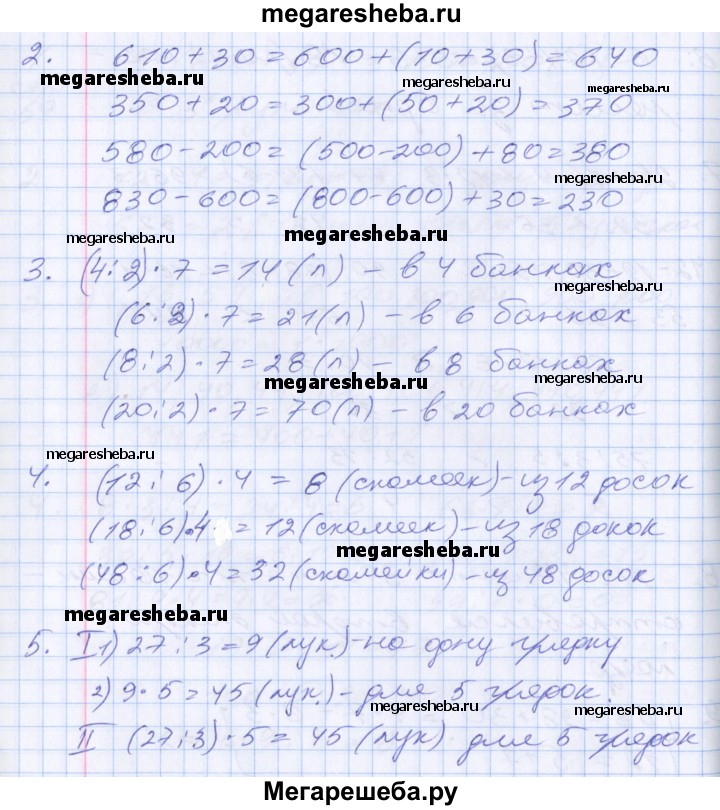 megaresheba.ru
2. 610 + 30 = 600 + (10 + 30) = 640
megaresheba.ru megaresheba.ru megaresheba.ru
350 + 20 = 300 + (50 + 20) = 370
580 - 200 = (500 - 200) + 80 = 380
megaresheba.ru
830 - 600 = (800 - 600) + 30 = 230
megaresheba.ru megaresheba.ru megaresheba.ru
3. (4 : 2) · 7 = 14 (л) - в 4 банках
megaresheba.ru
(6 : 2) · 7 = 21 (л) - в 6 банках
(8 : 2) · 7 = 28 (л) - в 8 банках
megaresheba.ru megaresheba.ru
(20 : 2) · 7 = 70 (л) - в 20 банках
megaresheba.ru megaresheba.ru
4. (12 : 6) · 4 = 8 (скамеек) - из 12 досок
(18 : 6) · 4 = 12 (скамеек) - из 18 докок
megaresheba.ru
(48 : 6) · 4 = 32 (скамейки) - из 48 досок
megaresheba.ru megaresheba.ru
5. I 1) 27 : 3 = 9 (лук.) - на одну грядку
2) 9 · 5 = 45 (лук.) - для 5 грядок.
megaresheba.ru megaresheba.ru
II (27 : 3) · 5 = 45 (лук) для 5 грядок
Мегарешеба.ру